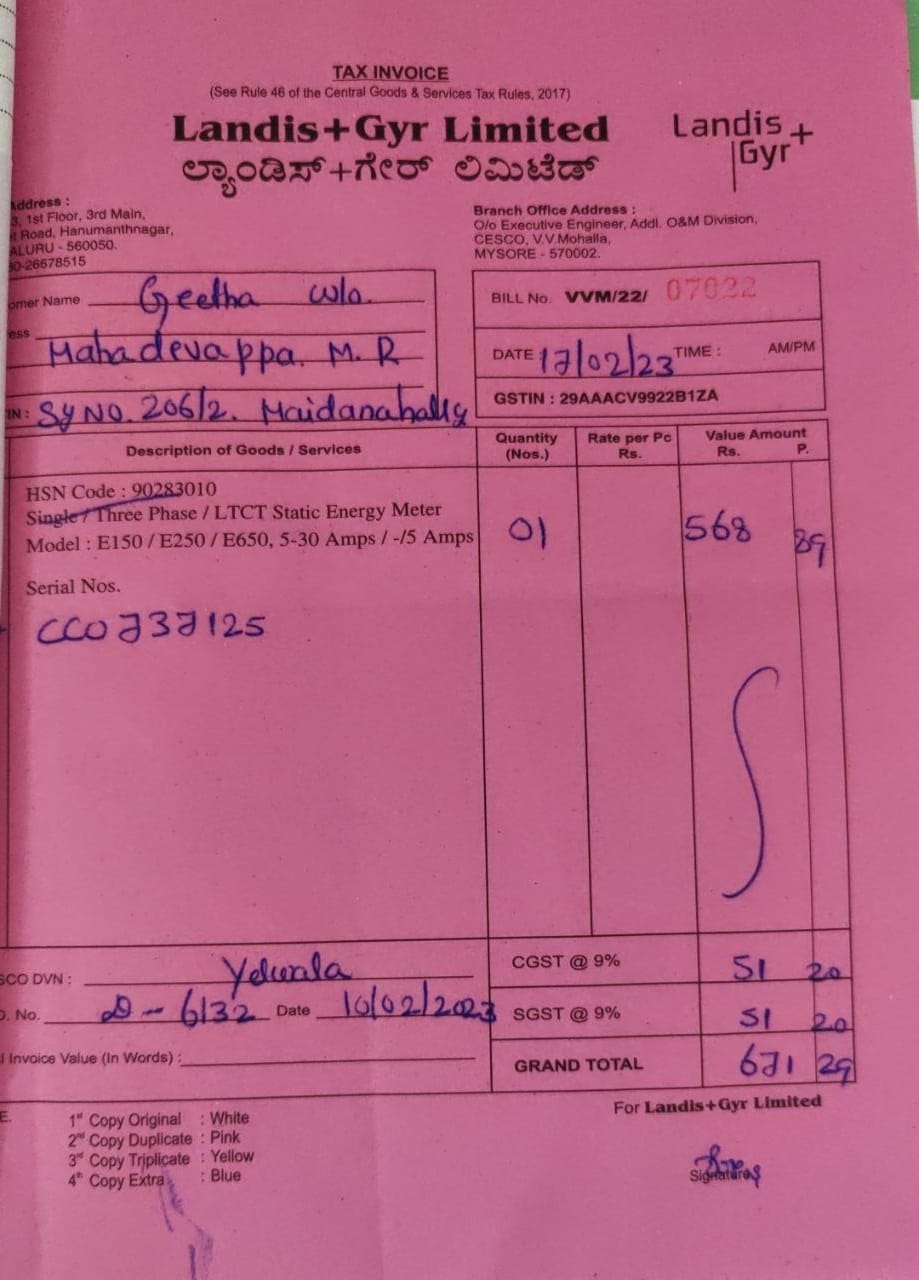 TAX INVOICE
(See Rule 46 of the Central Goods & Services Tax Rules, 2017)
Landis+Gyr Limited
ಲ್ಯಾಂಡಿಸ್+ಗೇರ್ ಲಿಮಿಟೆಡ್
Landis+
Gyr
Address :
, 1st Floor, 3rd Main,
Road, Hanumanthnagar,
ALURU - 560050.
0-26678515
Branch Office Address :
O/o Executive Engineer, Addl. O&M Division,
CESCO, V.V.Mohalla,
MYSORE - 570002.
omer Name Geetha W/o.
ess
Mahadevappa. M. R
IN : Sy NO. 206/2. Maidanahally
BILL No. VVM/22/ 07022
DATE 17/02/23 TIME : AM/PM
GSTIN : 29AAACV9922B1ZA
Description of Goods / Services
Quantity (Nos.)
Rate per Pc Rs.
Value Amount
Rs. P.
HSN Code : 90283010
Single / Three Phase / LTCT Static Energy Meter
Model : E150 / E250 / E650, 5-30 Amps / -/5 Amps 01 568 89
Serial Nos.
CC0737125
SCO DVN : Yelwala
CGST @ 9% 51 20
. No. D - 6132 Date 10/02/2023
SGST @ 9% 51 20
l Invoice Value (In Words) :
GRAND TOTAL 671 29
E. 1st Copy Original : White
2nd Copy Duplicate : Pink
3rd Copy Triplicate : Yellow
4th Copy Extra : Blue
For Landis+Gyr Limited
Signature